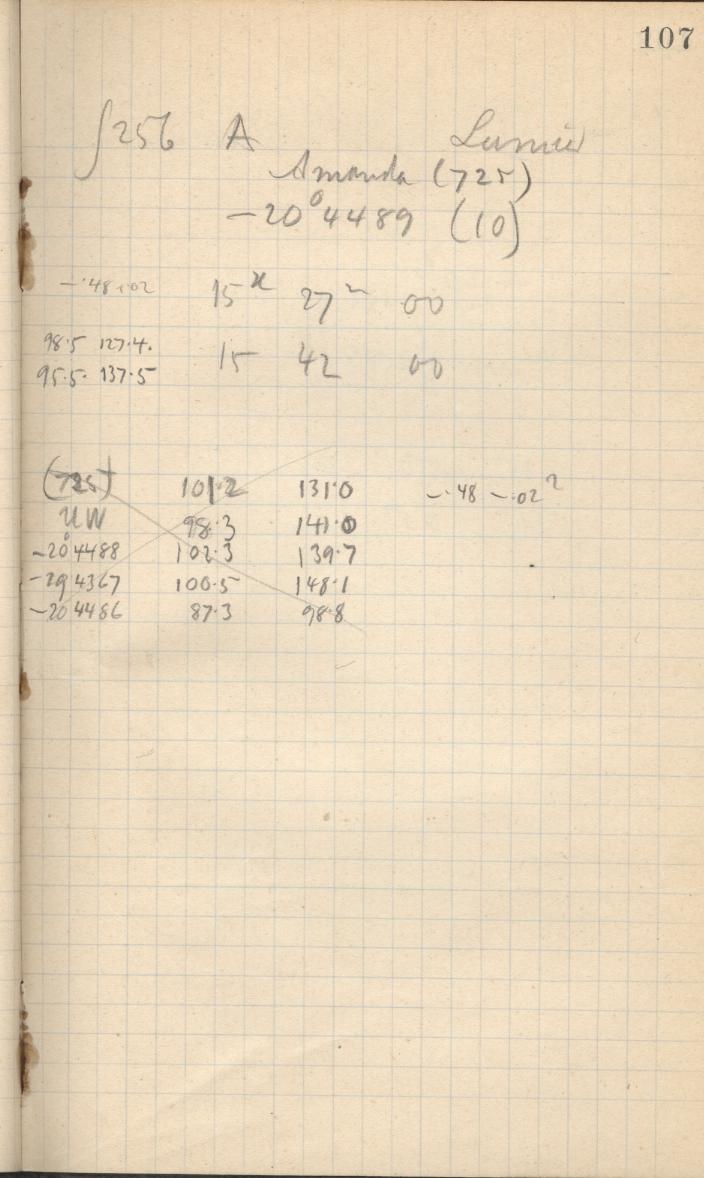 107
∫256 A Lumie
Amanda (725)
-20°4489 (10)
-·48 + 02 15 27 00
98·5 127·4.
15 42 00
95·5· 137·5
(725) 101·2 131·0 -·48 -·02
UW 98·3 141·0
-20°4488 102·3 139·7
4367 100·5 148·1
-20 4486 87·3 98·8